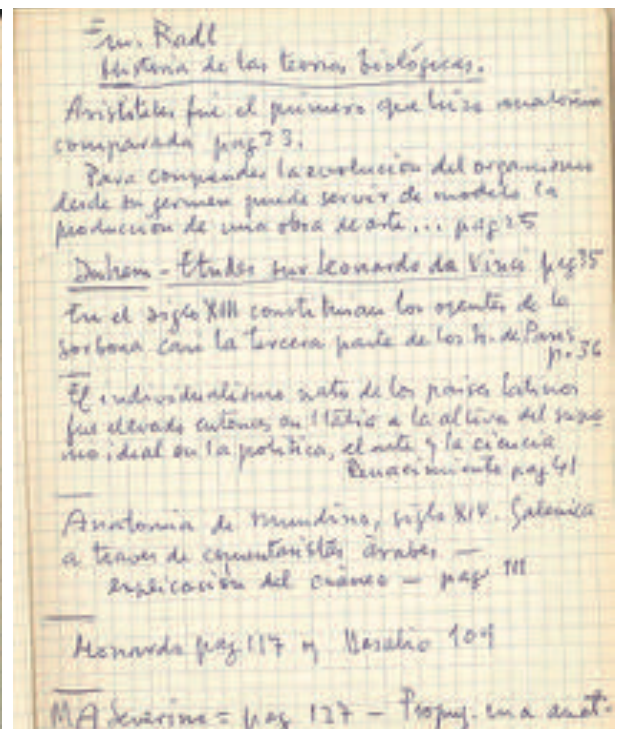 Em. Radl
Historia de las teorias biológicas.
Aristoteles fue el primero que hizo anatomia
comparada pag 23.
Para comprender la evolucion del organismo
desde su germen puede servir de modelo la
producción de una obra de arte... pag 25
Duhem - Etudes sur Leonardo da Vinci pag 35
En el siglo XIII constituian los oyentes de la
Sorbona casi la tercera parte de los h. de Paris
p. 36
El individualismo nato de los paises latinos
fue elevado entonces en Italia a la altiva del supre
mo ideal en la politica, el arte y la ciencia
Renacimiento pag 41
Anatomia de Mundino, siglo XIV. Galenica
a traves de comentaristas árabes —
explicación del cráneo — pag 111
pag 117 y Vesalio 109
MA Severino = pag 127 —